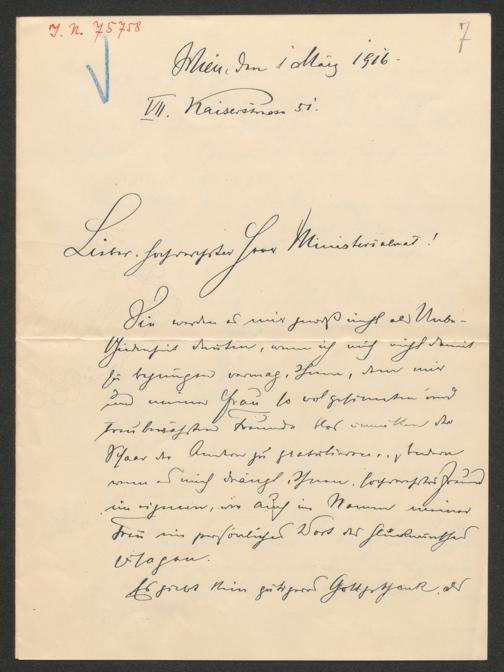 J. N. 75758
7
Wien, den 1 März 1916.
VII. Kaiserstrasse 51.
Lieber, hochverehrter Herr Ministerialrat!
Sie werden es mir gewiß nicht als Unbe-
scheidenheit deuten, wenn ich mich nicht damit
zu begnügen vermag, Ihnen, dem mir
und meiner Frau so wolgesinnten und
treubewährten Freunde blos inmitten der
Schaar der Andern zu gratulieren, sondern
wenn es mich drängt, Ihnen, hochverehrter Freund
im eigenen, wie auch im Namen meiner
Frau ein persönliches Wort des Glückwunsches
zu sagen.
Es giebt kein gütigeres Gottgeschenk, als